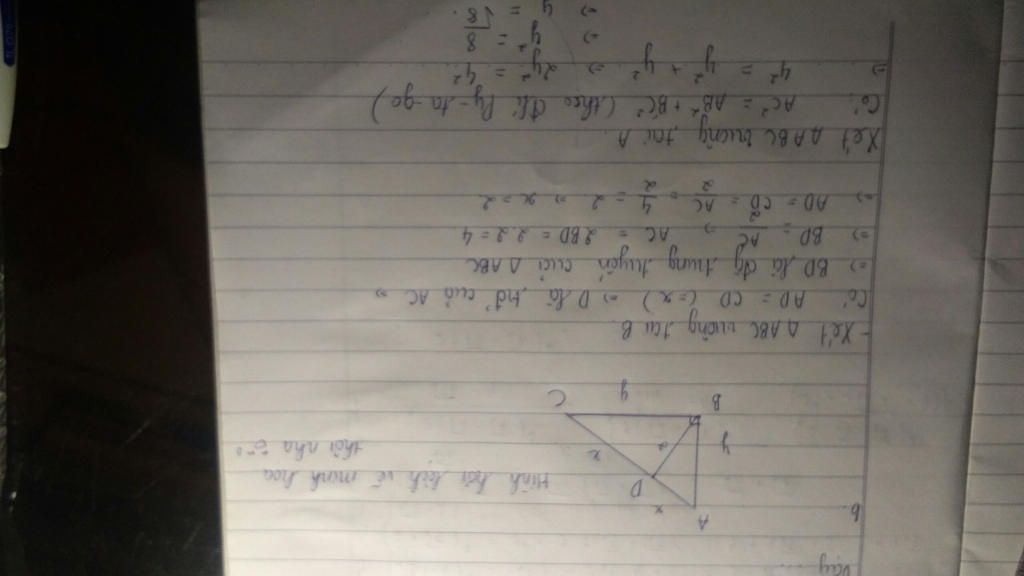 Vậy ...
b.
A
x
D
y
2
x
B
y
C
Hình hơi lệch vẽ minh hoạ
thôi nha
- Xét ΔABC vuông tại B.
Có AD = CD (=x) => D là tđ của AC =>
=> BD là đg trung tuyến của ΔABC
=> BD = AC/2 => AC = 2BD = 2.2 = 4
=> AD = CD = AC/2 = 4/2 = 2 => x = 2
Xét ΔABC vuông tại A.
Có: AC² = AB² + BC² (theo đlí Py-ta-go)
=> 4² = y² + y² => 2y² = 4²
=> y² = 8
=> y = √8.